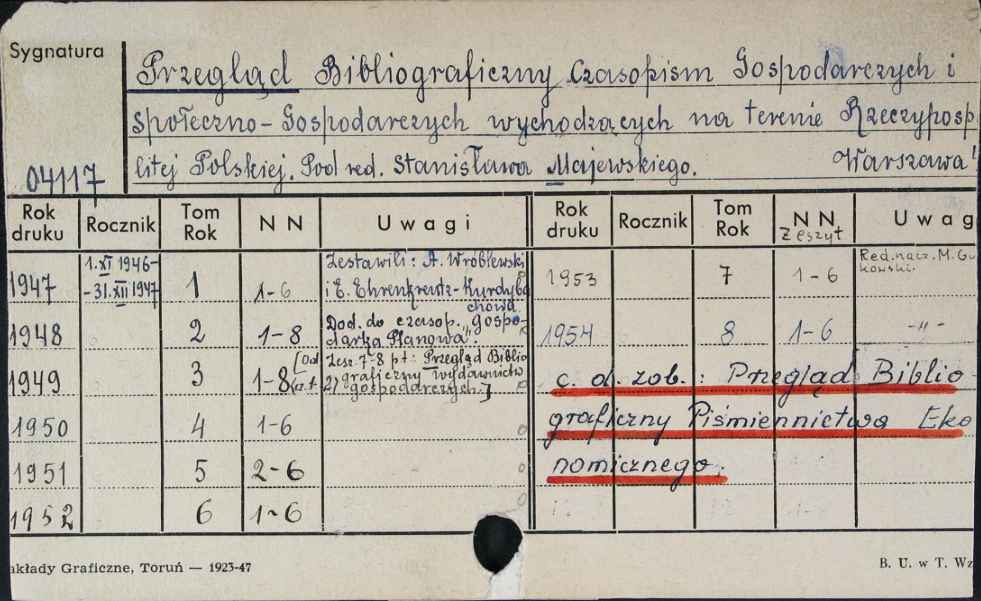 Sygnatura
Przegląd Bibliograficzny Czasopism Gospodarczych i
Społeczno-Gospodarczych wychodzących na terenie Rzeczyposp
litej Polskiej. Pod red. Stanisława Majewskiego. Warszawa
04117
Rok druku Rocznik Tom Rok NN Uwagi Rok druku Rocznik Tom Rok NN Zeszyt Uwag
1947 1.XI 1946- -31.XII 1947 1 1-6 Zestawili: A. Wróblewski i E. Ehrenkreutz-Kurdyba chowa. 1953 7 1-6 Red. nacz. M. Gu kowski.
1948 2 1-8 Dod. do czasop. "Gospo- darka Planowa". 1954 8 1-6 -"-
1949 3 1-8 [Od Zesz. 7-8 pt: Przegląd Biblio 2) graficzny wydawnictw gospodarczych.] c. d. zob.: Przegląd Biblio-
1950 4 1-6 graficzny Piśmiennictwa Eko
1951 5 2-6 nomicznego.
1952 6 1-6
akłady Graficzne, Toruń — 1923-47 B. U. w T. Wz